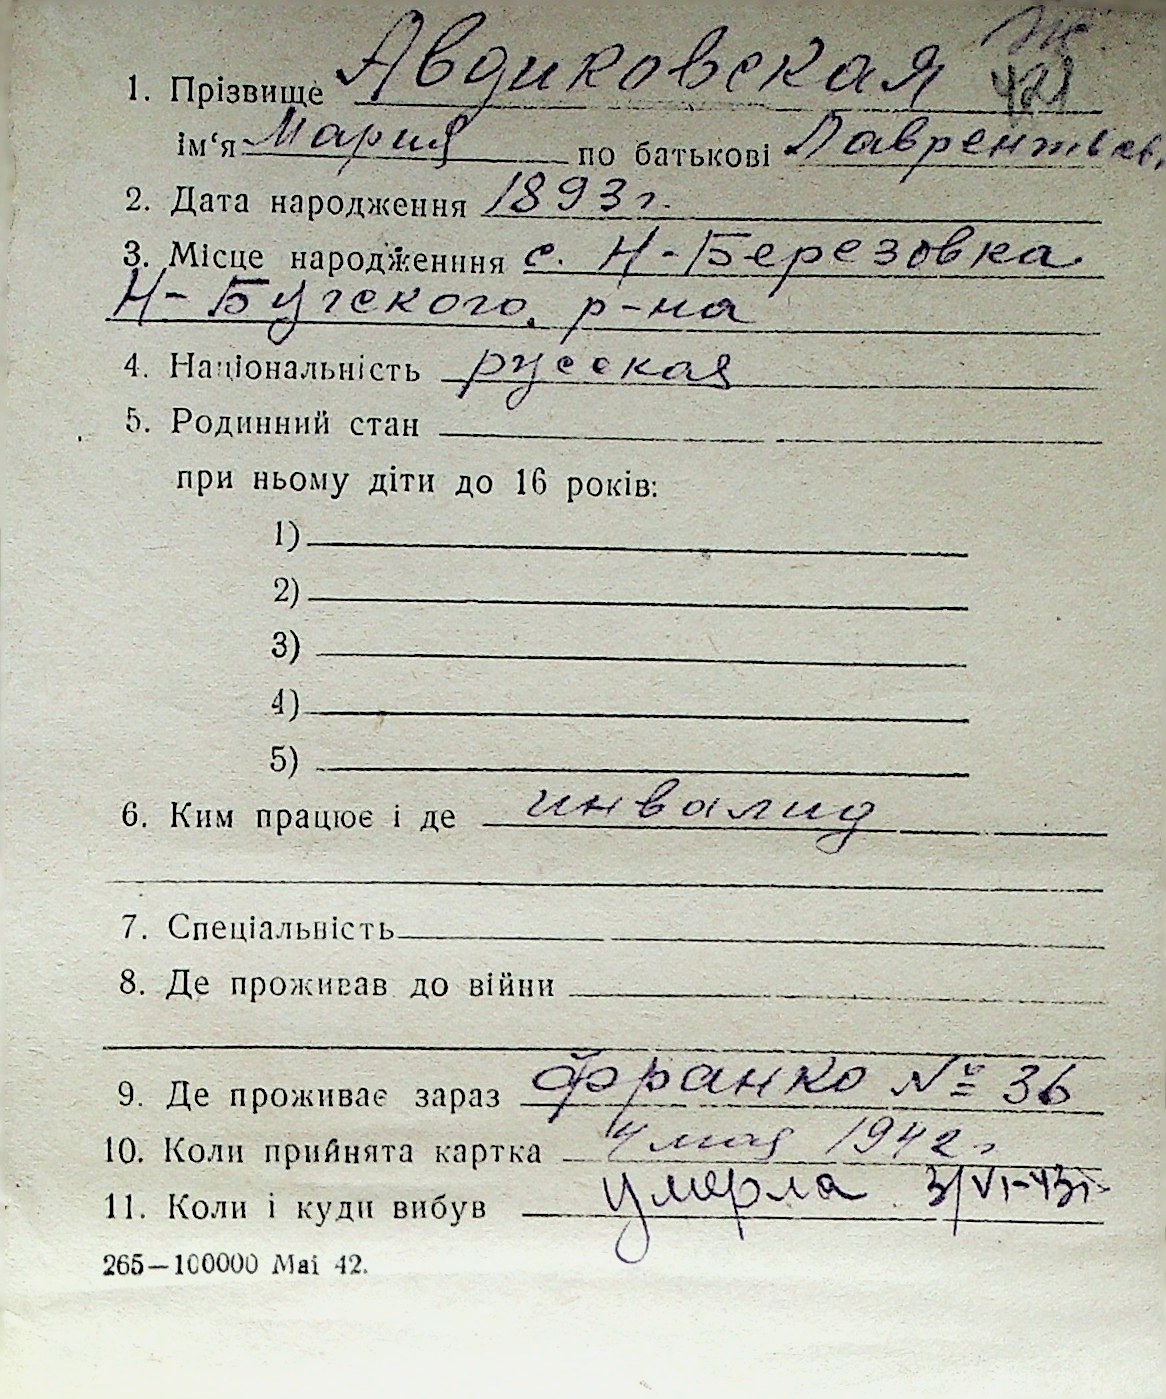 1. Прізвище Авдиковская
421
ім'я Мария по батькові Лаврентьев.
2. Дата народження 1893 г.
3. Місце народженння с. Н-Березовка
Н-Бугского р-на
4. Національність русская
5. Родинний стан
при ньому діти до 16 років:
1)
2)
3)
4)
5)
6. Ким працює і де инвалид
7. Спеціальність
8. Де проживав до війни
9. Де проживає зараз Франко № 36
10. Коли прийнята картка 4 мая 1942 г
11. Коли і куди вибув умерла 3/VI-43г
265—100000 Mai 42.